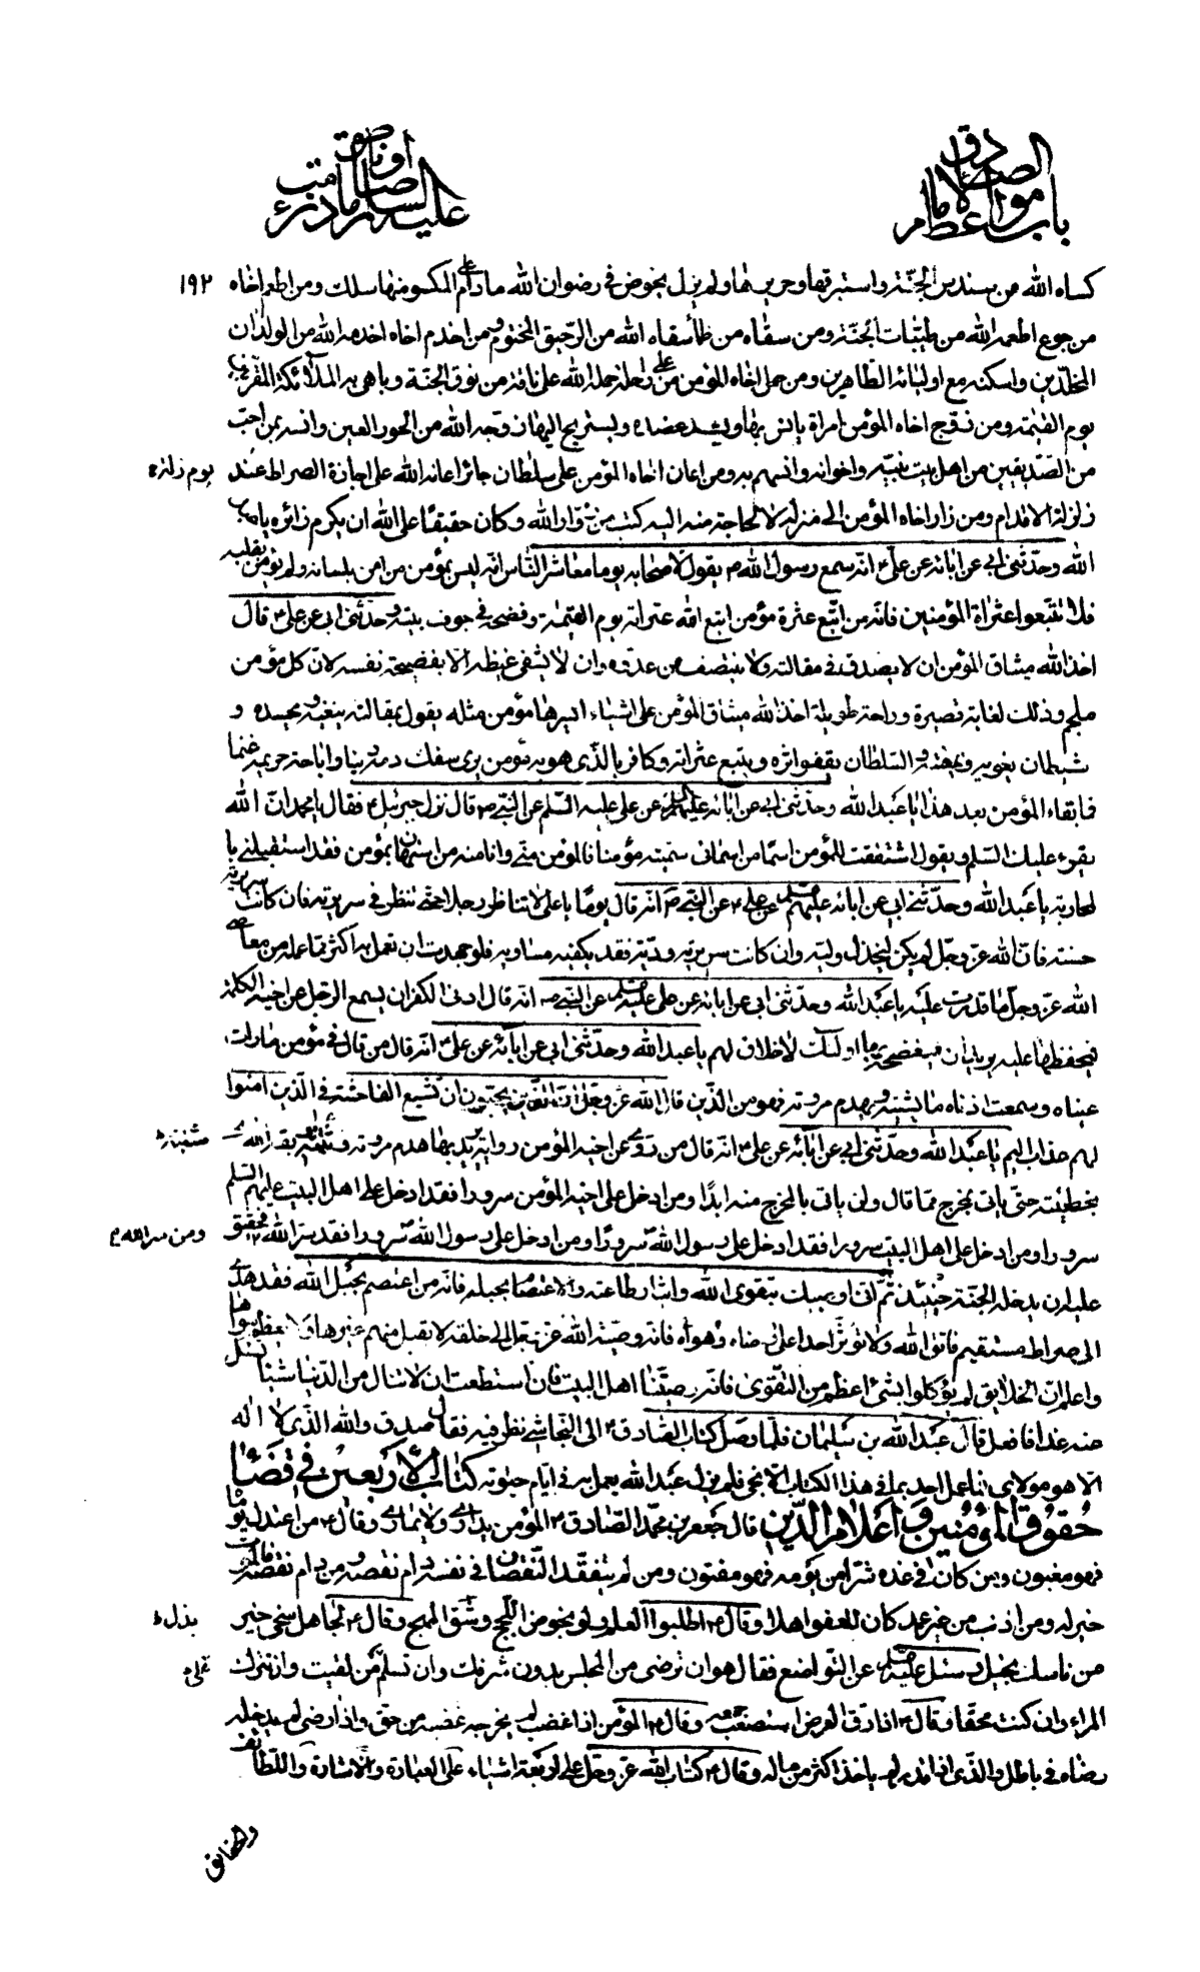 باب مواعظ الامام الصادق
عليه السلام
١٩٢
كساه الله من سندس الجنة واستبرقها وحريرها ولم يزل يخوض في رضوان الله مادام على المكسو منها سلك ومن اطعم اخاه
من جوع اطعمه الله من طيبات الجنة ومن سقاه من ظمأ سقاه الله من الرحيق المختوم ومن اخدم اخاه اخدمه الله من الولدان
المخلدين واسكنه مع اوليائه الطاهرين ومن حمل اخاه المؤمن من على راحلة حمله الله على ناقة من نوق الجنة وباهى به الملائكة المقربين
يوم القيمة ومن زوج اخاه المؤمن امراة يانس بها ويشد عضده ويستريح اليها زوجه الله من الحور العين وانسه بمن احب
من الصديقين من اهل بيت نبيه واخوانه وانسهم به ومن اعان اخاه المؤمن على سلطان جائر اعانه الله على اجازة الصراط عند
زلزلة الاقدام ومن زار اخاه المؤمن الى منزله لا لحاجة منه اليه كتب من زوار الله وكان حقيقا على الله ان يكرم زائره يا عبد
الله وحدثني ابي عن ابائه عن علي ع انه سمع رسول الله ص يقول لاصحابه يوما معاشر الناس انه ليس بمؤمن من امن بلسانه ولم يؤمن بقلبه
فلا تتبعوا عثرات المؤمنين فانه من اتبع عثرة مؤمن اتبع الله عثراته يوم القيمة وفضحه في جوف بيته وحدثني ابي عن علي ع قال
اخذ الله ميثاق المؤمن ان لا يصدق في مقالته ولا ينتصف من عدوه وان لا يشفى غيظه الا بفضيحة نفسه لان كل مؤمن
ملجم وذلك لغاية قصيرة وراحة طويلة اخذ الله ميثاق المؤمن على اشياء ايسرها مؤمن مثله يقول بمقالته يبغيه ويحسده و
شيطان يغويه ويمقته والسلطان يقفو اثره ويتبع عثراته وكافر بالذي هو به مؤمن يرى سفك دمه دينا واباحة حريمه غنما
فما بقاء المؤمن بعد هذا يا عبد الله وحدثني ابي عن ابائه عليهم السلم عن علي عليه السلم عن النبي ص قال نزل جبرئيل ع فقال يا محمد ان الله
يقرء عليك السلم ويقول اشتققت للمؤمن اسما من اسمائي سميته مؤمنا فالمؤمن مني وانا منه من استهان بمؤمن فقد استقبلني با
لمحاربة يا عبد الله وحدثني ابي عن ابائه عليهم السلم عن علي ع عن النبي ص انه قال يوما يا علي لا تناظر رجلا حتى تنظر في سريرته فان كانت سريرته
حسنة فان الله عز وجل لم يكن ليخذل وليه وان كانت سريرته ردية فقد يكفيه مساويه فلو جهدت ان تعمل به اكثر مما عمله من معاصي
الله عز وجل ما قدرت عليه يا عبد الله وحدثني ابي عن ابائه عن علي عليه السلم عن النبي ص انه قال ادنى الكفر ان يسمع الرجل عن اخيه الكلمة
فيحفظها عليه يريد ان يفضحه بها اولئك لا خلاق لهم يا عبد الله وحدثني ابي عن ابائه عن علي ع انه قال من قال في مؤمن ما رات
عيناه وسمعت اذناه ما يشينه ويهدم مروته فهو من الذين قال الله عز وجل ان الذين يحبون ان تشيع الفاحشة في الذين امنوا
لهم عذاب اليم يا عبد الله وحدثني ابي عن ابائه عن علي ع انه قال من روى عن اخيه المؤمن رواية يريد بها هدم مروته
بخطيئته حتى ياتي بمخرج مما قال ولن ياتي بالمخرج منه ابدا ومن ادخل على اخيه المؤمن سرورا فقد ادخل على اهل البيت عليهم السلم
سرورا ومن ادخل على اهل البيت سرورا فقد ادخل على رسول الله ص سرورا ومن ادخل على رسول الله ص سرورا فقد سر الله فحقيق
ومن سر الله
عليه ان يدخله الجنة حينئذ ثم اني اوصيك بتقوى الله وايثار طاعته والاعتصام بحبله فانه من اعتصم بحبل الله فقد هدى
الى صراط مستقيم فاتق الله ولا تؤثر احدا على رضاه وهواه فانه وصية الله عز وجل الى خلقه لا يقبل منهم غيرها ولا يعظم سواها
واعلم ان الخلايق لم يوكلوا بشئ اعظم من التقوى فانه وصيتنا اهل البيت فان استطعت ان لا تنال من الدنيا شيئا تسئل
عنه غدا فافعل قال عبد الله بن سليمان فلما وصل كتاب الصادق ع الى النجاشي نظر فيه فقال صدق والله الذي لا اله
الا هو مولاي فما عمل احد بما في هذا الكتاب الا نجى فلم يزل عبد الله يعمل به في ايام حيوته كتاب الاربعين في قضاء
حقوق المؤمنين واعلام الدين قال جعفر بن محمد الصادق ع المؤمن يداري ولا يماري وقال ع من اعتدل يوماه
فهو مغبون ومن كان في غده شرا من يومه فهو مفتون ومن لم يتفقد النقصان في نفسه دام نقصه ومن دام نقصه فالموت
خير له ومن اذنب من غير عمد كان للعفو اهلا وقال ع اطلبوا العلم ولو بخوض اللجج وشق المهج وقال ع لجاهل سخي خير
من ناسك بخيل وسئل عليه السلم عن التواضع فقال هو ان ترضى من المجلس بدون شرفك وان تسلم على من لقيت وان تترك
المراء وان كنت محقا وقال ع اذا دق العرض استصعب جمعه وقال ع المؤمن اذا غضب لم يخرجه غضبه من حق واذا رضي لم يدخله
رضاه في باطل والذي اذا قدر لم ياخذ اكثر من ماله وقال ع كتاب الله عز وجل على اربعة اشياء على العبارة والاشارة واللطائف
والحقايق